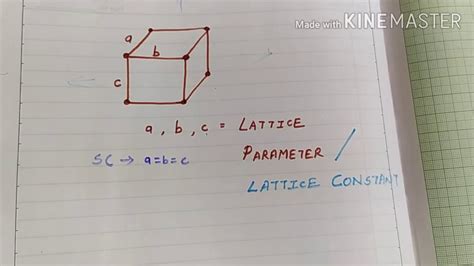 Made with KINEMASTER
a
b
c
a, b, c = LATTICE
SC → a=b=c
PARAMETER /
LATTICE CONSTANT